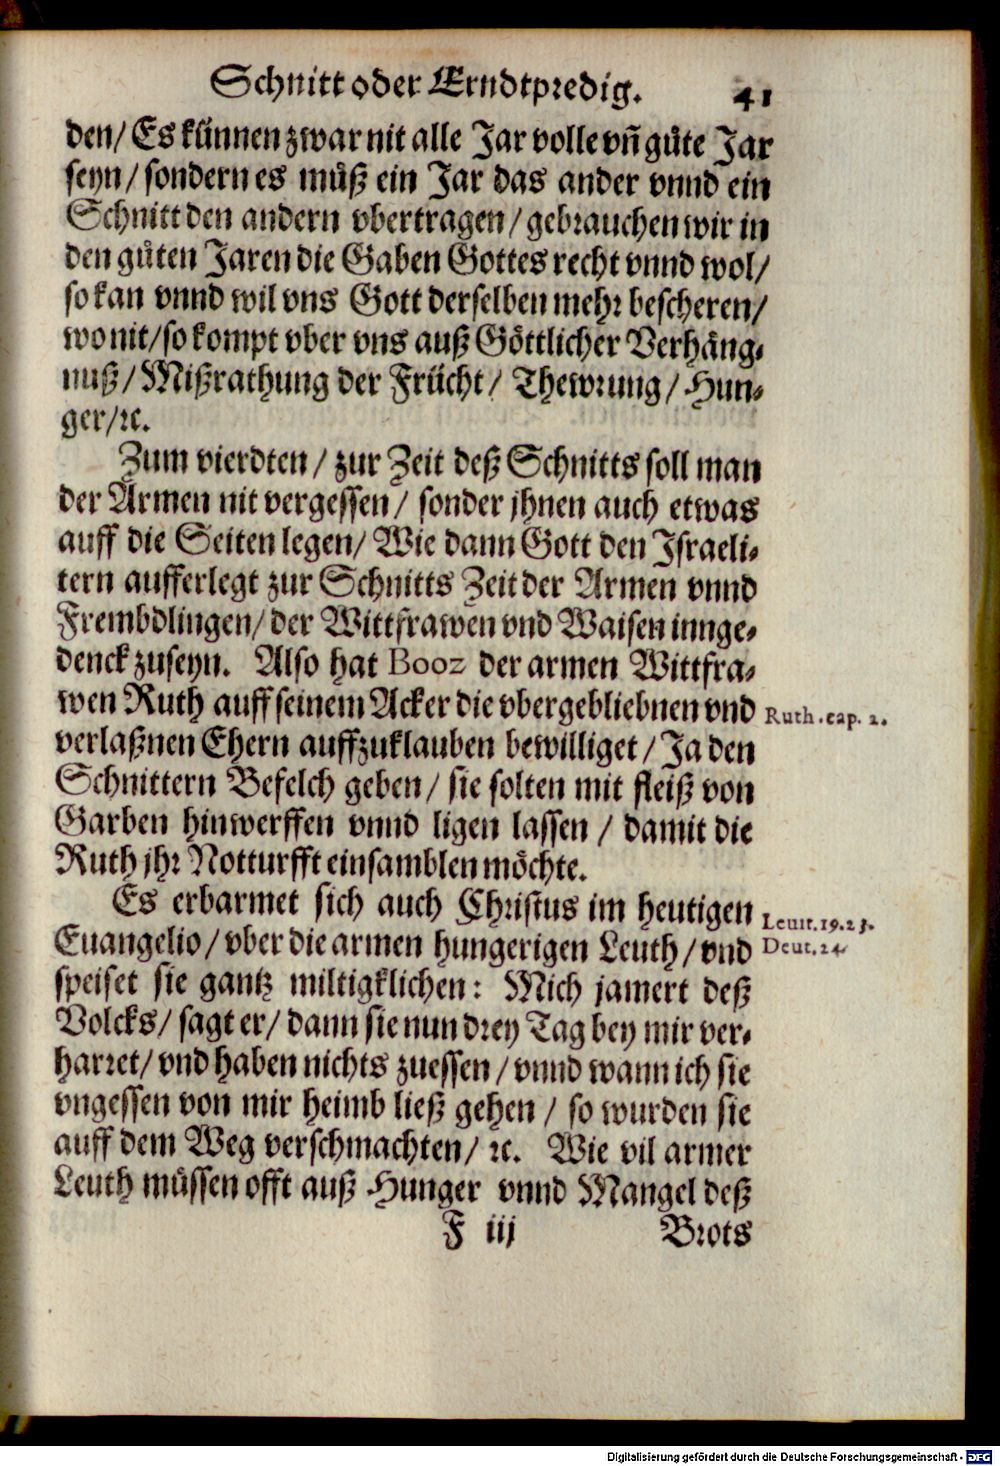 Schnitt oder Erndtpredig. 41
den/ Es künnen zwar nit alle Jar volle vñ gůte Jar
seyn/ sondern es můß ein Jar das ander vnnd ein
Schnitt den andern vbertragen/ gebrauchen wir in
den gůten Jaren die Gaben Gottes recht vnnd wol/
so kan vnnd wil vns Gott derselben mehr bescheren/
wo nit/ so kompt vber vns auß Göttlicher Verhäng-
nuß/ Mißrathung der Frücht/ Thewrung/ Hun-
ger/ ꝛc.
Zum vierdten/ zur Zeit deß Schnitts soll man
der Armen nit vergessen/ sonder jhnen auch etwas
auff die Seiten legen/ Wie dann Gott den Israeli-
tern aufferlegt zur Schnitts Zeit der Armen vnnd
Frembdlingen/ der Wittfrawen vnd Waisen innge-
denck zuseyn. Also hat Booz der armen Wittfra-
wen Ruth auff seinem Acker die vbergebliebnen vnd
Ruth. cap. 2.
verlaßnen Ehern auffzuklauben bewilliget/ Ja den
Schnittern Befelch geben/ sie solten mit fleiß von
Garben hinwerffen vnnd ligen lassen/ damit die
Ruth jhr Notturfft einsamblen möchte.
Es erbarmet sich auch Christus im heutigen
Leuit. 19. 23.
Euangelio/ vber die armen hungerigen Leuth/ vnd
Deut. 24
speiset sie gantz miltigklichen: Mich jamert deß
Volcks/ sagt er/ dann sie nun drey Tag bey mir ver-
harret/ vnd haben nichts zuessen/ vnnd wann ich sie
vngessen von mir heimb ließ gehen/ so wurden sie
auff dem Weg verschmachten/ ꝛc. Wie vil armer
Leuth müssen offt auß Hunger vnnd Mangel deß
F iij Brots
Digitalisierung gefördert durch die Deutsche Forschungsgemeinschaft - DFG